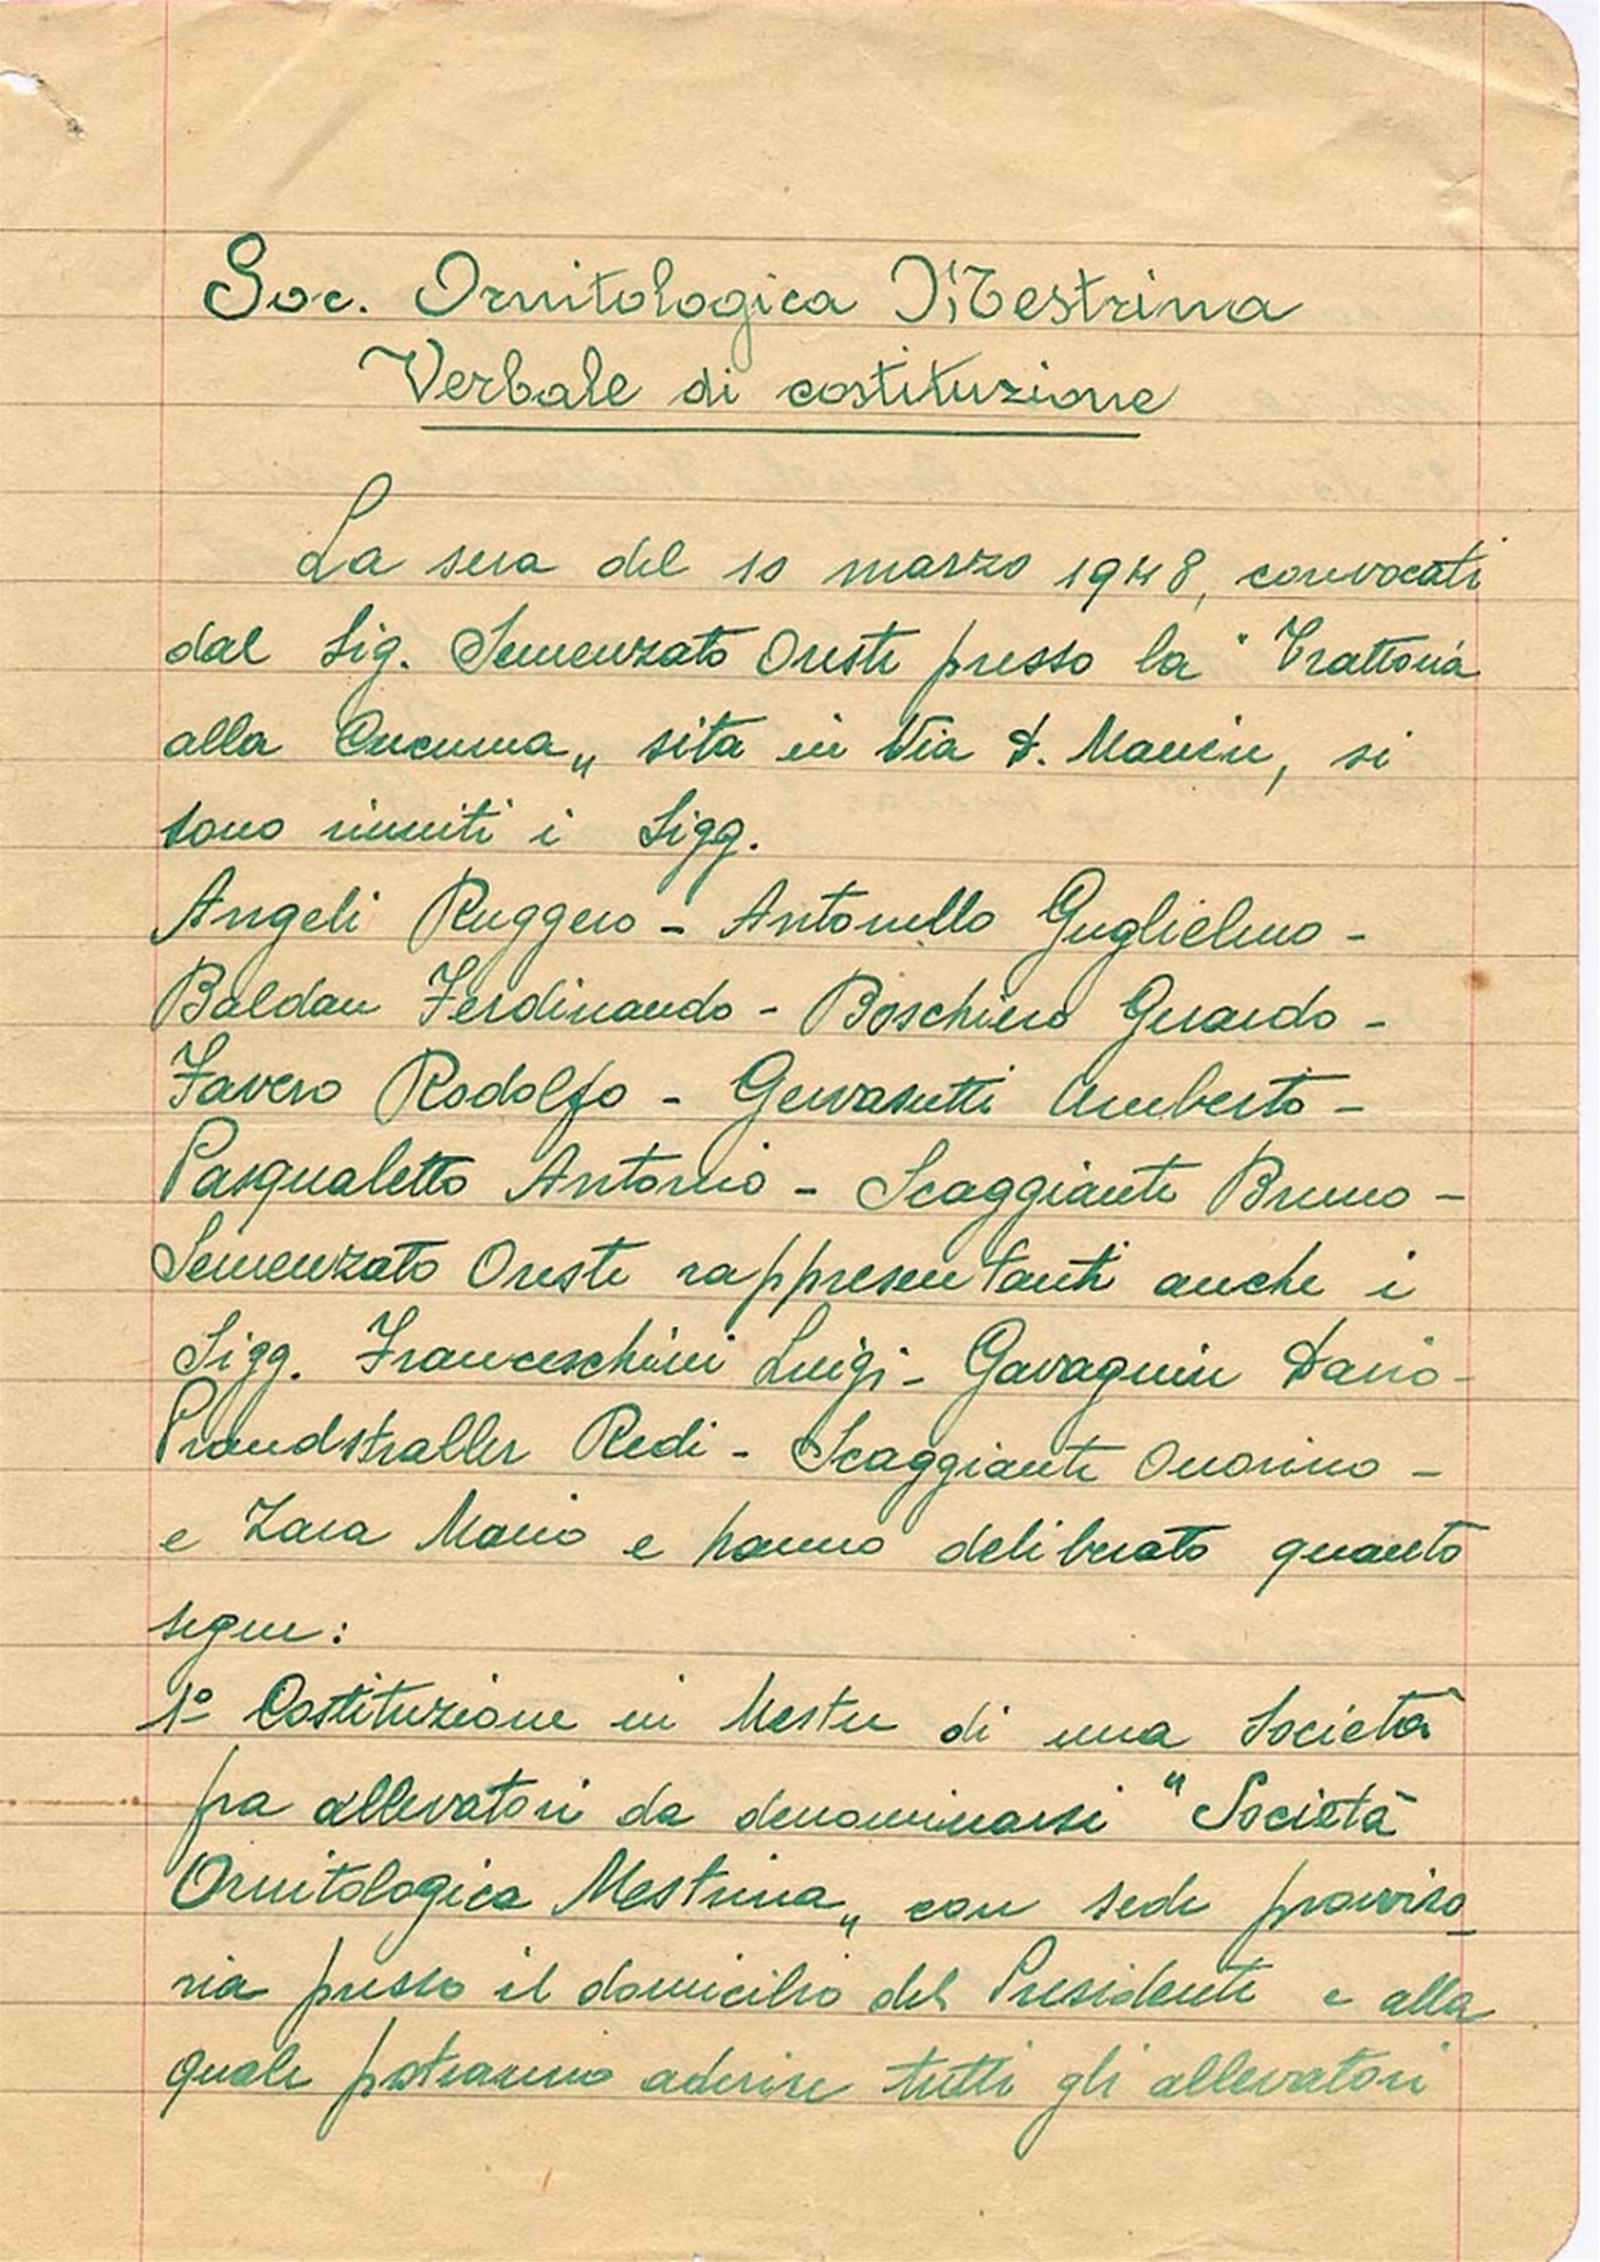 Soc. Ornitologica Mestrina
Verbale di costituzione
La sera del 10 marzo 1948, convocati
dal Sig. Semenzato Oreste presso la "Trattoria
alla Cucuma„ sita in Via D. Manin, si
sono riuniti i Sigg.
Angeli Ruggero - Antonello Guglielmo -
Baldan Ferdinando - Boschiero Gerardo -
Favero Rodolfo - Gervasutti Umberto -
Pasqualetto Antonio - Scaggiante Bruno -
Semenzato Oreste rappresentanti anche i
Sigg. Franceschini Luigi - Gavagnin Dario -
Prandstraller Redi - Scaggiante Onorino -
e Zara Mario e hanno deliberato quanto
segue:
1º Costituzione in Mestre di una Società
fra allevatori da denominarsi "Società
Ornitologica Mestrina„ con sede provviso-
ria presso il domicilio del Presidente e alla
quale potranno aderire tutti gli allevatori